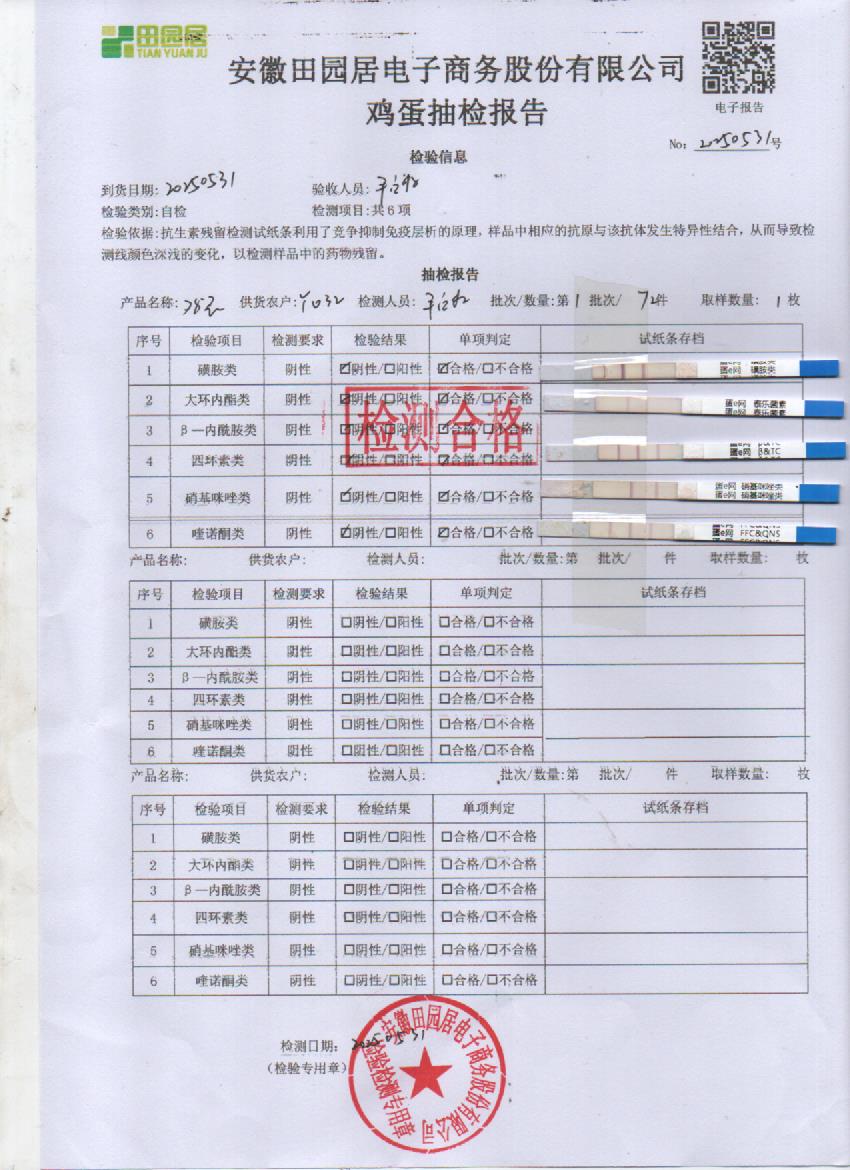 田园居
TIAN YUAN JU
安徽田园居电子商务股份有限公司
鸡蛋抽检报告
电子报告
No: 20250531号
检验信息
到货日期: 20250531 验收人员:
检验类别:自检 检测项目:共6项
检验依据:抗生素残留检测试纸条利用了竞争抑制免疫层析的原理，样品中相应的抗原与该抗体发生特异性结合，从而导致检
测线颜色深浅的变化，以检测样品中的药物残留。
抽检报告
产品名称: 供货农户: 检测人员: 批次/数量:第 1 批次/ 72件 取样数量: 1 枚
序号 检验项目 检测要求 检验结果 单项判定 试纸条存档
1 磺胺类 阴性 ☑阴性/☐阳性 ☑合格/☐不合格 蛋e网 磺胺类
2 大环内酯类 阴性 ☑阴性/☐阳性 ☑合格/☐不合格 蛋e网 泰乐菌素
3 β—内酰胺类 阴性 ☑阴性/☐阳性 ☑合格/☐不合格
4 四环素类 阴性 ☑阴性/☐阳性 ☑合格/☐不合格 蛋e网 β&TC
5 硝基咪唑类 阴性 ☑阴性/☐阳性 ☑合格/☐不合格 蛋e网 硝基咪唑类
6 喹诺酮类 阴性 ☑阴性/☐阳性 ☑合格/☐不合格 蛋e网 FFC&QNS
检测合格
产品名称: 供货农户: 检测人员: 批次/数量:第 批次/ 件 取样数量: 枚
序号 检验项目 检测要求 检验结果 单项判定 试纸条存档
1 磺胺类 阴性 ☐阴性/☐阳性 ☐合格/☐不合格
2 大环内酯类 阴性 ☐阴性/☐阳性 ☐合格/☐不合格
3 β—内酰胺类 阴性 ☐阴性/☐阳性 ☐合格/☐不合格
4 四环素类 阴性 ☐阴性/☐阳性 ☐合格/☐不合格
5 硝基咪唑类 阴性 ☐阴性/☐阳性 ☐合格/☐不合格
6 喹诺酮类 阴性 ☐阴性/☐阳性 ☐合格/☐不合格
产品名称: 供货农户: 检测人员: 批次/数量:第 批次/ 件 取样数量: 枚
序号 检验项目 检测要求 检验结果 单项判定 试纸条存档
1 磺胺类 阴性 ☐阴性/☐阳性 ☐合格/☐不合格
2 大环内酯类 阴性 ☐阴性/☐阳性 ☐合格/☐不合格
3 β—内酰胺类 阴性 ☐阴性/☐阳性 ☐合格/☐不合格
4 四环素类 阴性 ☐阴性/☐阳性 ☐合格/☐不合格
5 硝基咪唑类 阴性 ☐阴性/☐阳性 ☐合格/☐不合格
6 喹诺酮类 阴性 ☐阴性/☐阳性 ☐合格/☐不合格
检测日期: 20250531
（检验专用章）
安徽田园居电子商务股份有限公司
检验检测专用章